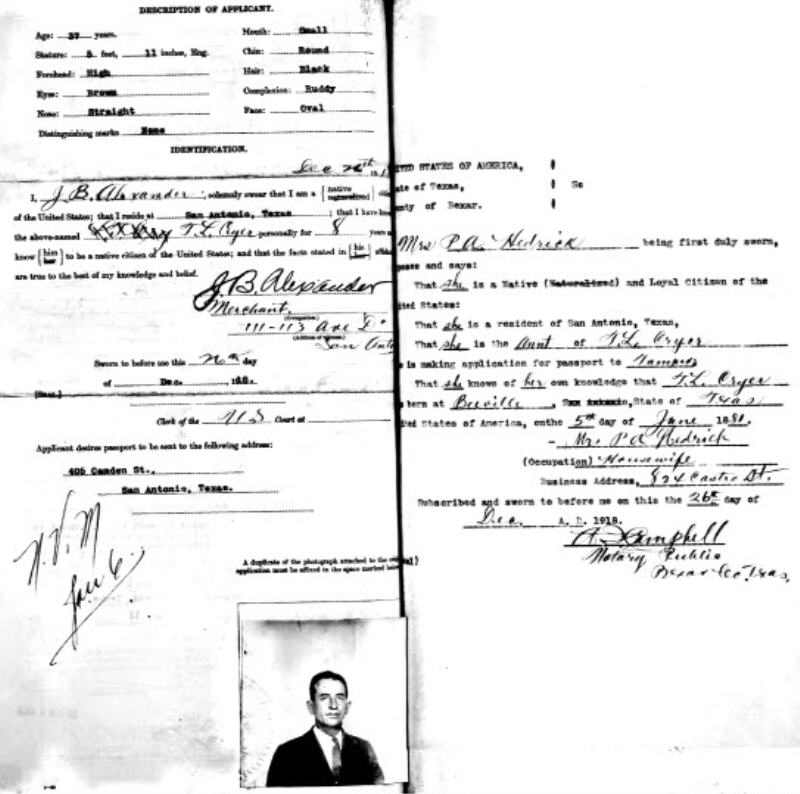 DESCRIPTION OF APPLICANT.
Age: 37 years.
Mouth: Small
Stature: 5 feet, 11 inches, Eng.
Chin: Round
Forehead: High
Hair: Black
Eyes: Brown
Complexion: Ruddy
Nose: Straight
Face: Oval
Distinguishing marks None
IDENTIFICATION.
Dec 26th, 191
I, J. B. Alexander, solemnly swear that I am a {native naturalized}
of the United States; that I reside at San Antonio, Texas; that I have
the above-named T. L. Cryer personally for 8 years
know {him her} to be a native citizen of the United States; and that the facts stated in {his her}
are true to the best of my knowledge and belief.
J. B. Alexander
Merchant.
(Occupation.)
111-113 Ave D.
(Address of witness.)
San
Sworn to before me this 26th day
of Dec., 191
[Seal.]
Clerk of the U S Court at
Applicant desires passport to be sent to the following address:
405 Camden St.,
San Antonio, Texas.
Jan 6.
A duplicate of the photograph attached to the
application must be affixed in the space marked
ITED STATES OF AMERICA,
te of Texas, Ss
nty of Bexar.
Mrs P.A. Hedrick being first duly sworn,
and says:
That she is a Native (Naturalized) and Loyal Citizen of the
ited States:
That she is a resident of San Antonio, Texas,
That she is the Aunt of T. L. Cryer
is making application for passport to Tampico
That she knows of her own knowledge that T. L. Cryer
born at Beeville, San Antonio, State of Texas
ited States of America, on the 5th day of June 1881.
- Mrs P A Hedrick
(Occupation) Housewife
Business Address, 824 Castro St.
Subscribed and sworn to before me on this the 26th day of
Dec A. D. 1918.
Campbell
Notary Public
Bexar Co. Texas,